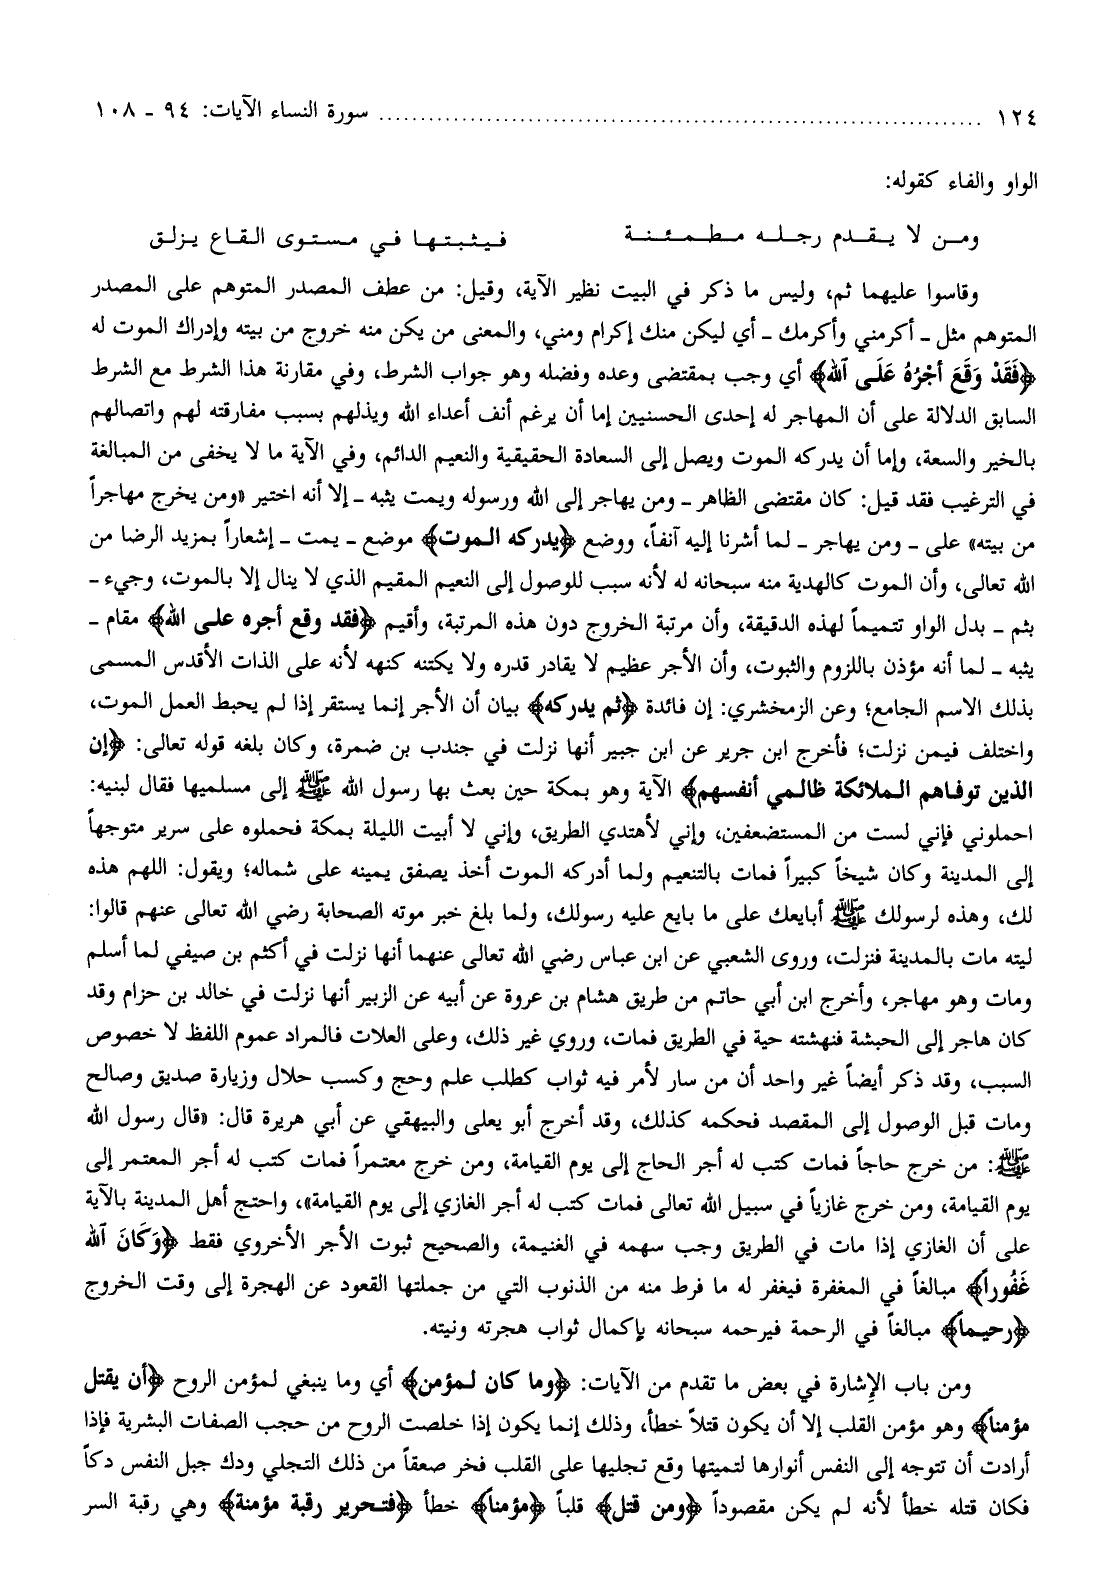 ١٢٤ ........................................................................ سورة النساء الآيات: ٩٤ ـ ١٠٨
الواو والفاء كقوله:
ومـن لا يـقـدم رجلـه مـطـمـئـنـة فـيـثـبـتـهـا فـي مـسـتـوى الـقـاع يـزلـق
وقاسوا عليهما ثم، وليس ما ذكر في البيت نظير الآية، وقيل: من عطف المصدر المتوهم على المصدر
المتوهم مثل ـ أكرمني وأكرمك ـ أي ليكن منك إكرام ومني، والمعنى من يكن منه خروج من بيته وإدراك الموت له
﴿فَقَدْ وَقَعَ أجْرُهُ عَلَى اللهِ﴾ أي وجب بمقتضى وعده وفضله وهو جواب الشرط، وفي مقارنة هذا الشرط مع الشرط
السابق الدلالة على أن المهاجر له إحدى الحسنيين إما أن يرغم أنف أعداء الله ويذلهم بسبب مفارقته لهم واتصالهم
بالخير والسعة، وإما أن يدركه الموت ويصل إلى السعادة الحقيقية والنعيم الدائم، وفي الآية ما لا يخفى من المبالغة
في الترغيب فقد قيل: كان مقتضى الظاهر ـ ومن يهاجر إلى الله ورسوله ويمت يثبه ـ إلا أنه اختير «ومن يخرج مهاجراً
من بيته» على ـ ومن يهاجر ـ لما أشرنا إليه آنفاً، ووضع ﴿يدركه الموت﴾ موضع ـ يمت ـ إشعاراً بمزيد الرضا من
الله تعالى، وأن الموت كالهدية منه سبحانه له لأنه سبب للوصول إلى النعيم المقيم الذي لا ينال إلا بالموت، وجيء ـ
بثم ـ بدل الواو تتميماً لهذه الدقيقة، وأن مرتبة الخروج دون هذه المرتبة، وأقيم ﴿فقد وقع أجره على الله﴾ مقام ـ
يثبه ـ لما أنه مؤذن باللزوم والثبوت، وأن الأجر عظيم لا يقادر قدره ولا يكتنه كنهه لأنه على الذات الأقدس المسمى
بذلك الاسم الجامع؛ وعن الزمخشري: إن فائدة ﴿ثم يدركه﴾ بيان أن الأجر إنما يستقر إذا لم يحبط العمل الموت،
واختلف فيمن نزلت؛ فأخرج ابن جرير عن ابن جبير أنها نزلت في جندب بن ضمرة، وكان بلغه قوله تعالى: ﴿إن
الذين توفاهم الملائكة ظالمي أنفسهم﴾ الآية وهو بمكة حين بعث بها رسول الله ﷺ إلى مسلميها فقال لبنيه:
احملوني فإني لست من المستضعفين، وإني لأهتدي الطريق، وإني لا أبيت الليلة بمكة فحملوه على سرير متوجهاً
إلى المدينة وكان شيخاً كبيراً فمات بالتنعيم ولما أدركه الموت أخذ يصفق يمينه على شماله؛ ويقول: اللهم هذه
لك، وهذه لرسولك ﷺ أبايعك على ما بايع عليه رسولك، ولما بلغ خبر موته الصحابة رضي الله تعالى عنهم قالوا:
ليته مات بالمدينة فنزلت، وروى الشعبي عن ابن عباس رضي الله تعالى عنهما أنها نزلت في أكثم بن صيفي لما أسلم
ومات وهو مهاجر، وأخرج ابن أبي حاتم من طريق هشام بن عروة عن أبيه عن الزبير أنها نزلت في خالد بن حزام وقد
كان هاجر إلى الحبشة فنهشته حية في الطريق فمات، وروي غير ذلك، وعلى العلات فالمراد عموم اللفظ لا خصوص
السبب، وقد ذكر أيضاً غير واحد أن من سار لأمر فيه ثواب كطلب علم وحج وكسب حلال وزيارة صديق وصالح
ومات قبل الوصول إلى المقصد فحكمه كذلك، وقد أخرج أبو يعلى والبيهقي عن أبي هريرة قال: «قال رسول الله
ﷺ: من خرج حاجاً فمات كتب له أجر الحاج إلى يوم القيامة، ومن خرج معتمراً فمات كتب له أجر المعتمر إلى
يوم القيامة، ومن خرج غازياً في سبيل الله تعالى فمات كتب له أجر الغازي إلى يوم القيامة»، واحتج أهل المدينة بالآية
على أن الغازي إذا مات في الطريق وجب سهمه في الغنيمة، والصحيح ثبوت الأجر الأخروي فقط ﴿وَكَانَ اللهُ
غَفُوراً﴾ مبالغاً في المغفرة فيغفر له ما فرط منه من الذنوب التي من جملتها القعود عن الهجرة إلى وقت الخروج
﴿رحيماً﴾ مبالغاً في الرحمة فيرحمه سبحانه بإكمال ثواب هجرته ونيته.
ومن باب الإشارة في بعض ما تقدم من الآيات: ﴿وما كان لمؤمن﴾ أي وما ينبغي لمؤمن الروح ﴿أن يقتل
مؤمناً﴾ وهو مؤمن القلب إلا أن يكون قتلاً خطأ، وذلك إنما يكون إذا خلصت الروح من حجب الصفات البشرية فإذا
أرادت أن تتوجه إلى النفس أنوارها لتميتها وقع تجليها على القلب فخر صعقاً من ذلك التجلي ودك جبل النفس دكاً
فكان قتله خطأ لأنه لم يكن مقصوداً ﴿ومن قتل﴾ قلباً ﴿مؤمناً﴾ خطأ ﴿فتحرير رقبة مؤمنة﴾ وهي رقبة السر